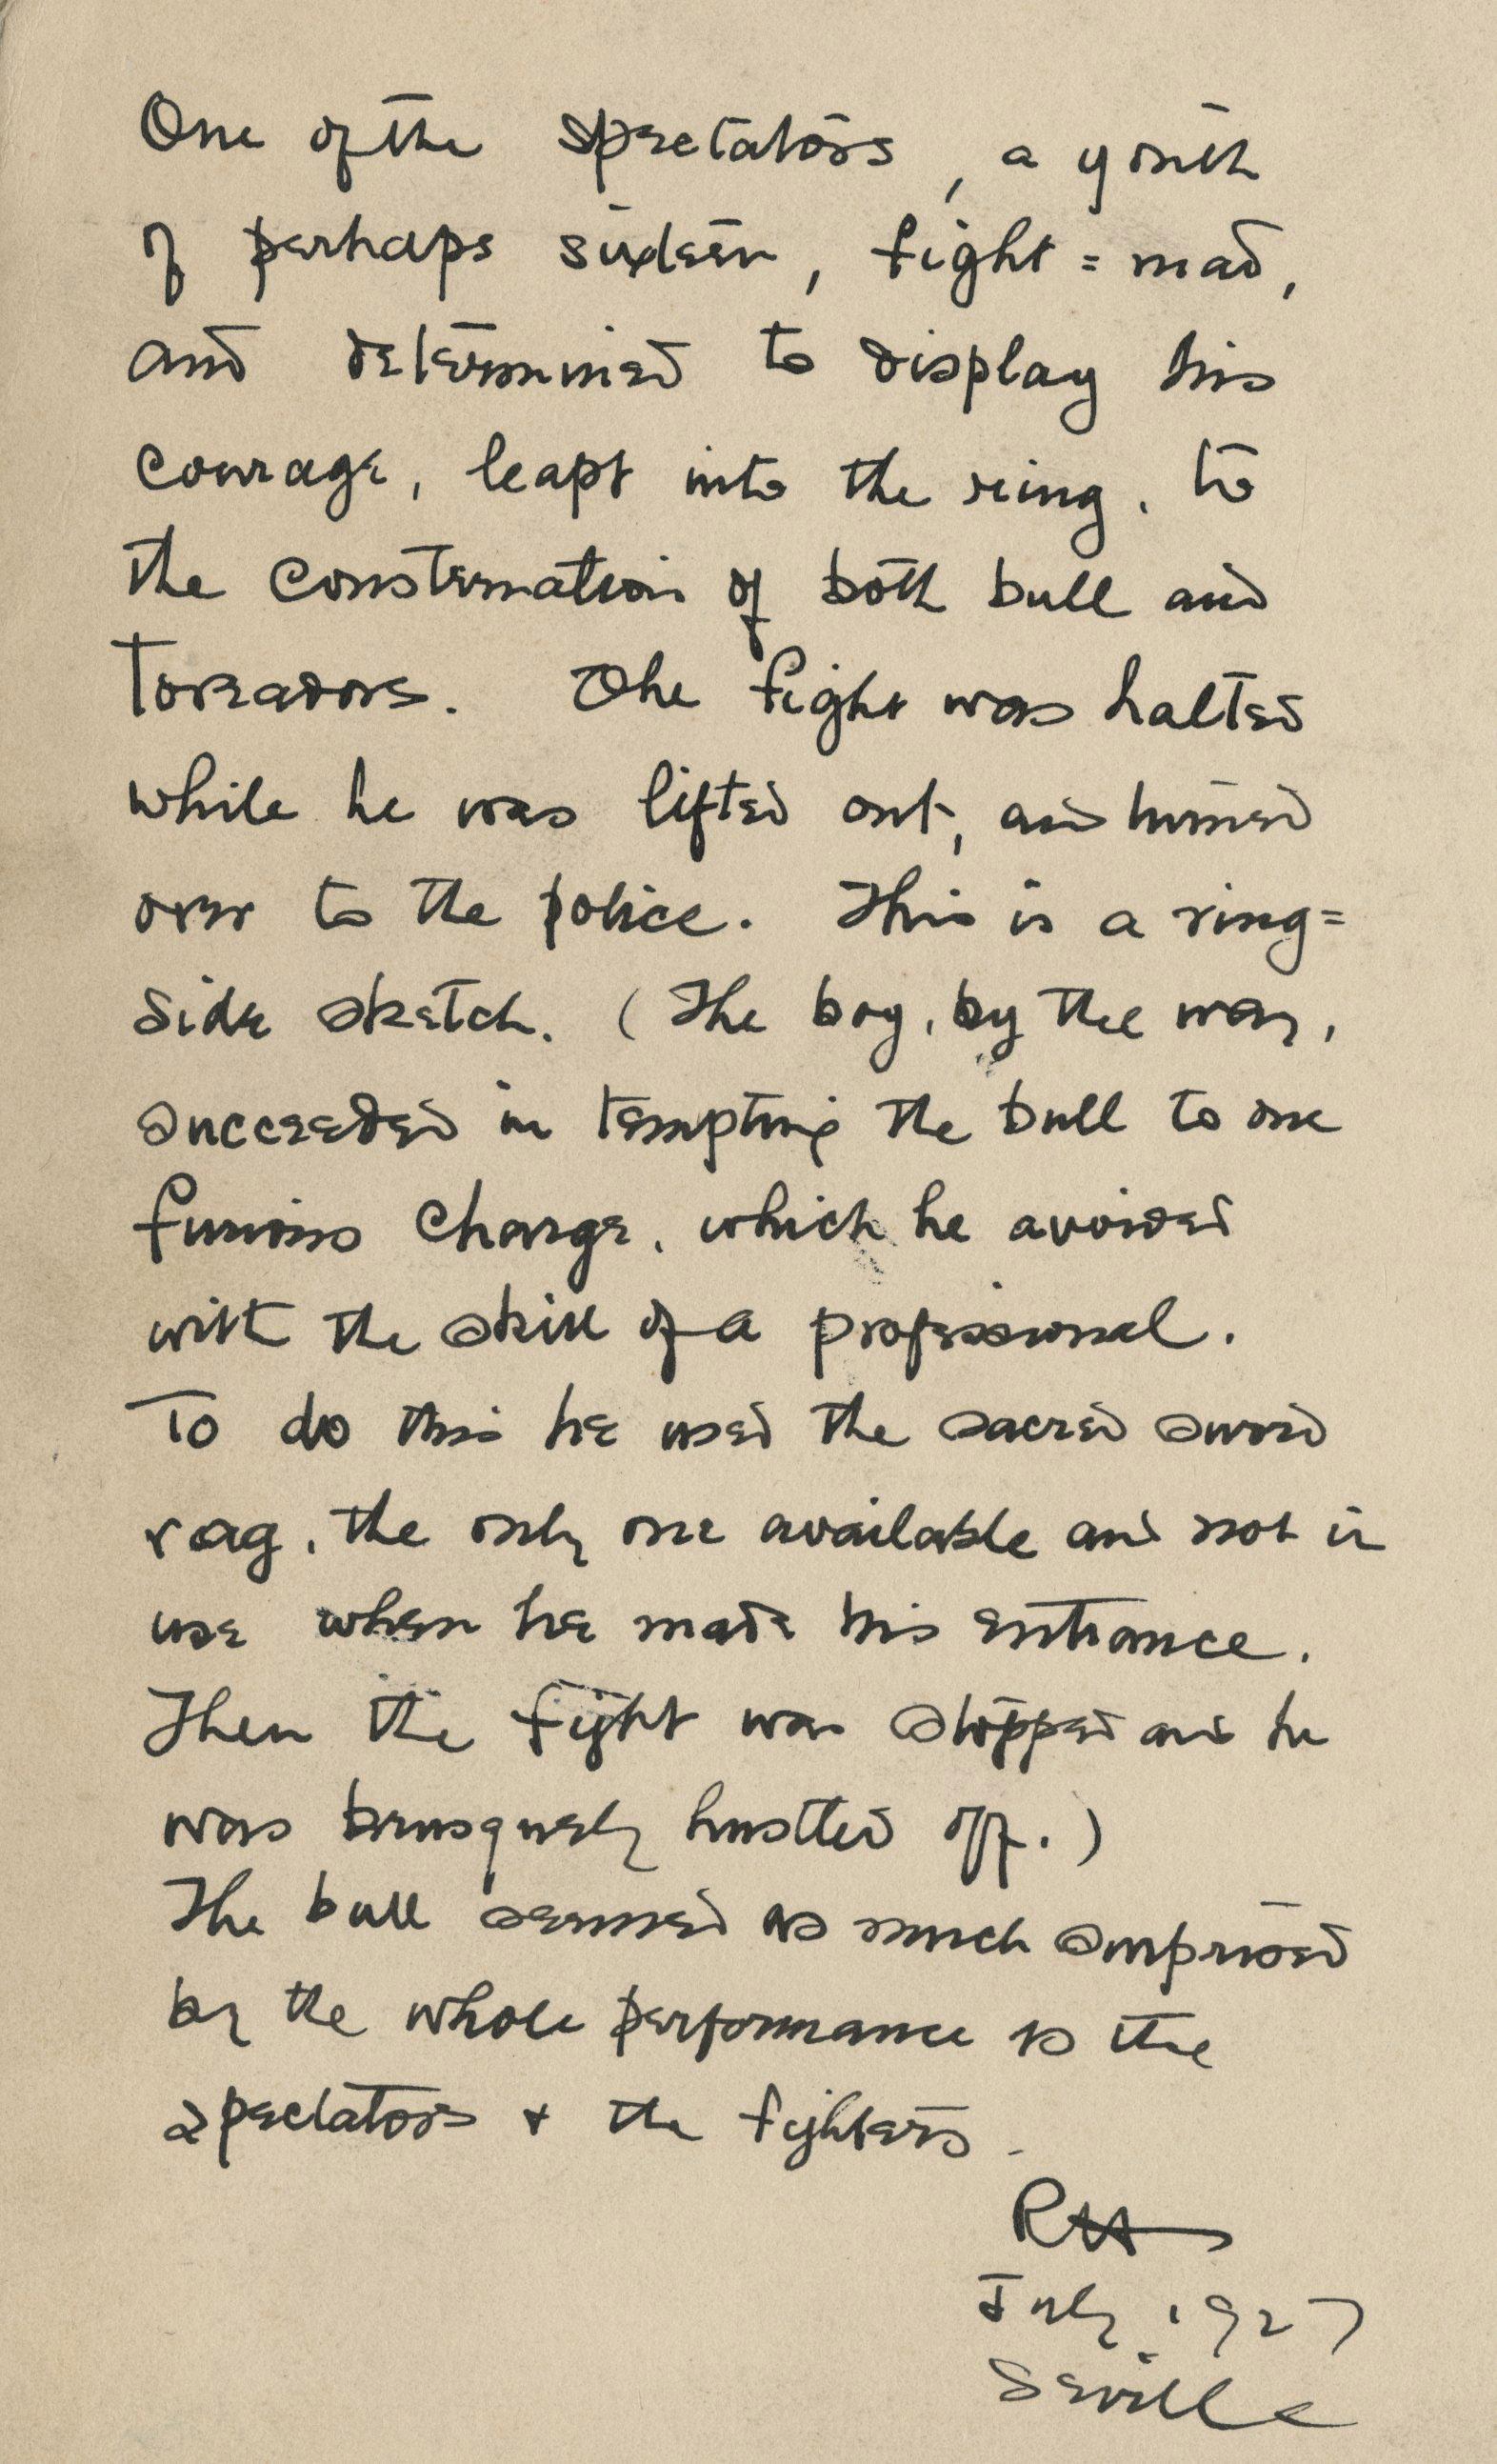 One of the spectators, a youth
of perhaps sixteen, fight=mad,
and determined to display his
courage, leapt into the ring, to
the consternation of both bull and
toreadors. The fight was halted
while he was lifted out, and turned
over to the police. This is a ring=
side sketch. (The boy, by the way,
succeeded in tempting the bull to one
furious charge, which he avoided
with the skill of a professional.
To do this he used the sacred sword
rag, the only one available and not in
use when he made his entrance.
Then the fight was stopped and he
was brusquely hustled off.)
The bull seemed as much surprised
by the whole performance as the
spectators & the fighters.
July 1927
Seville